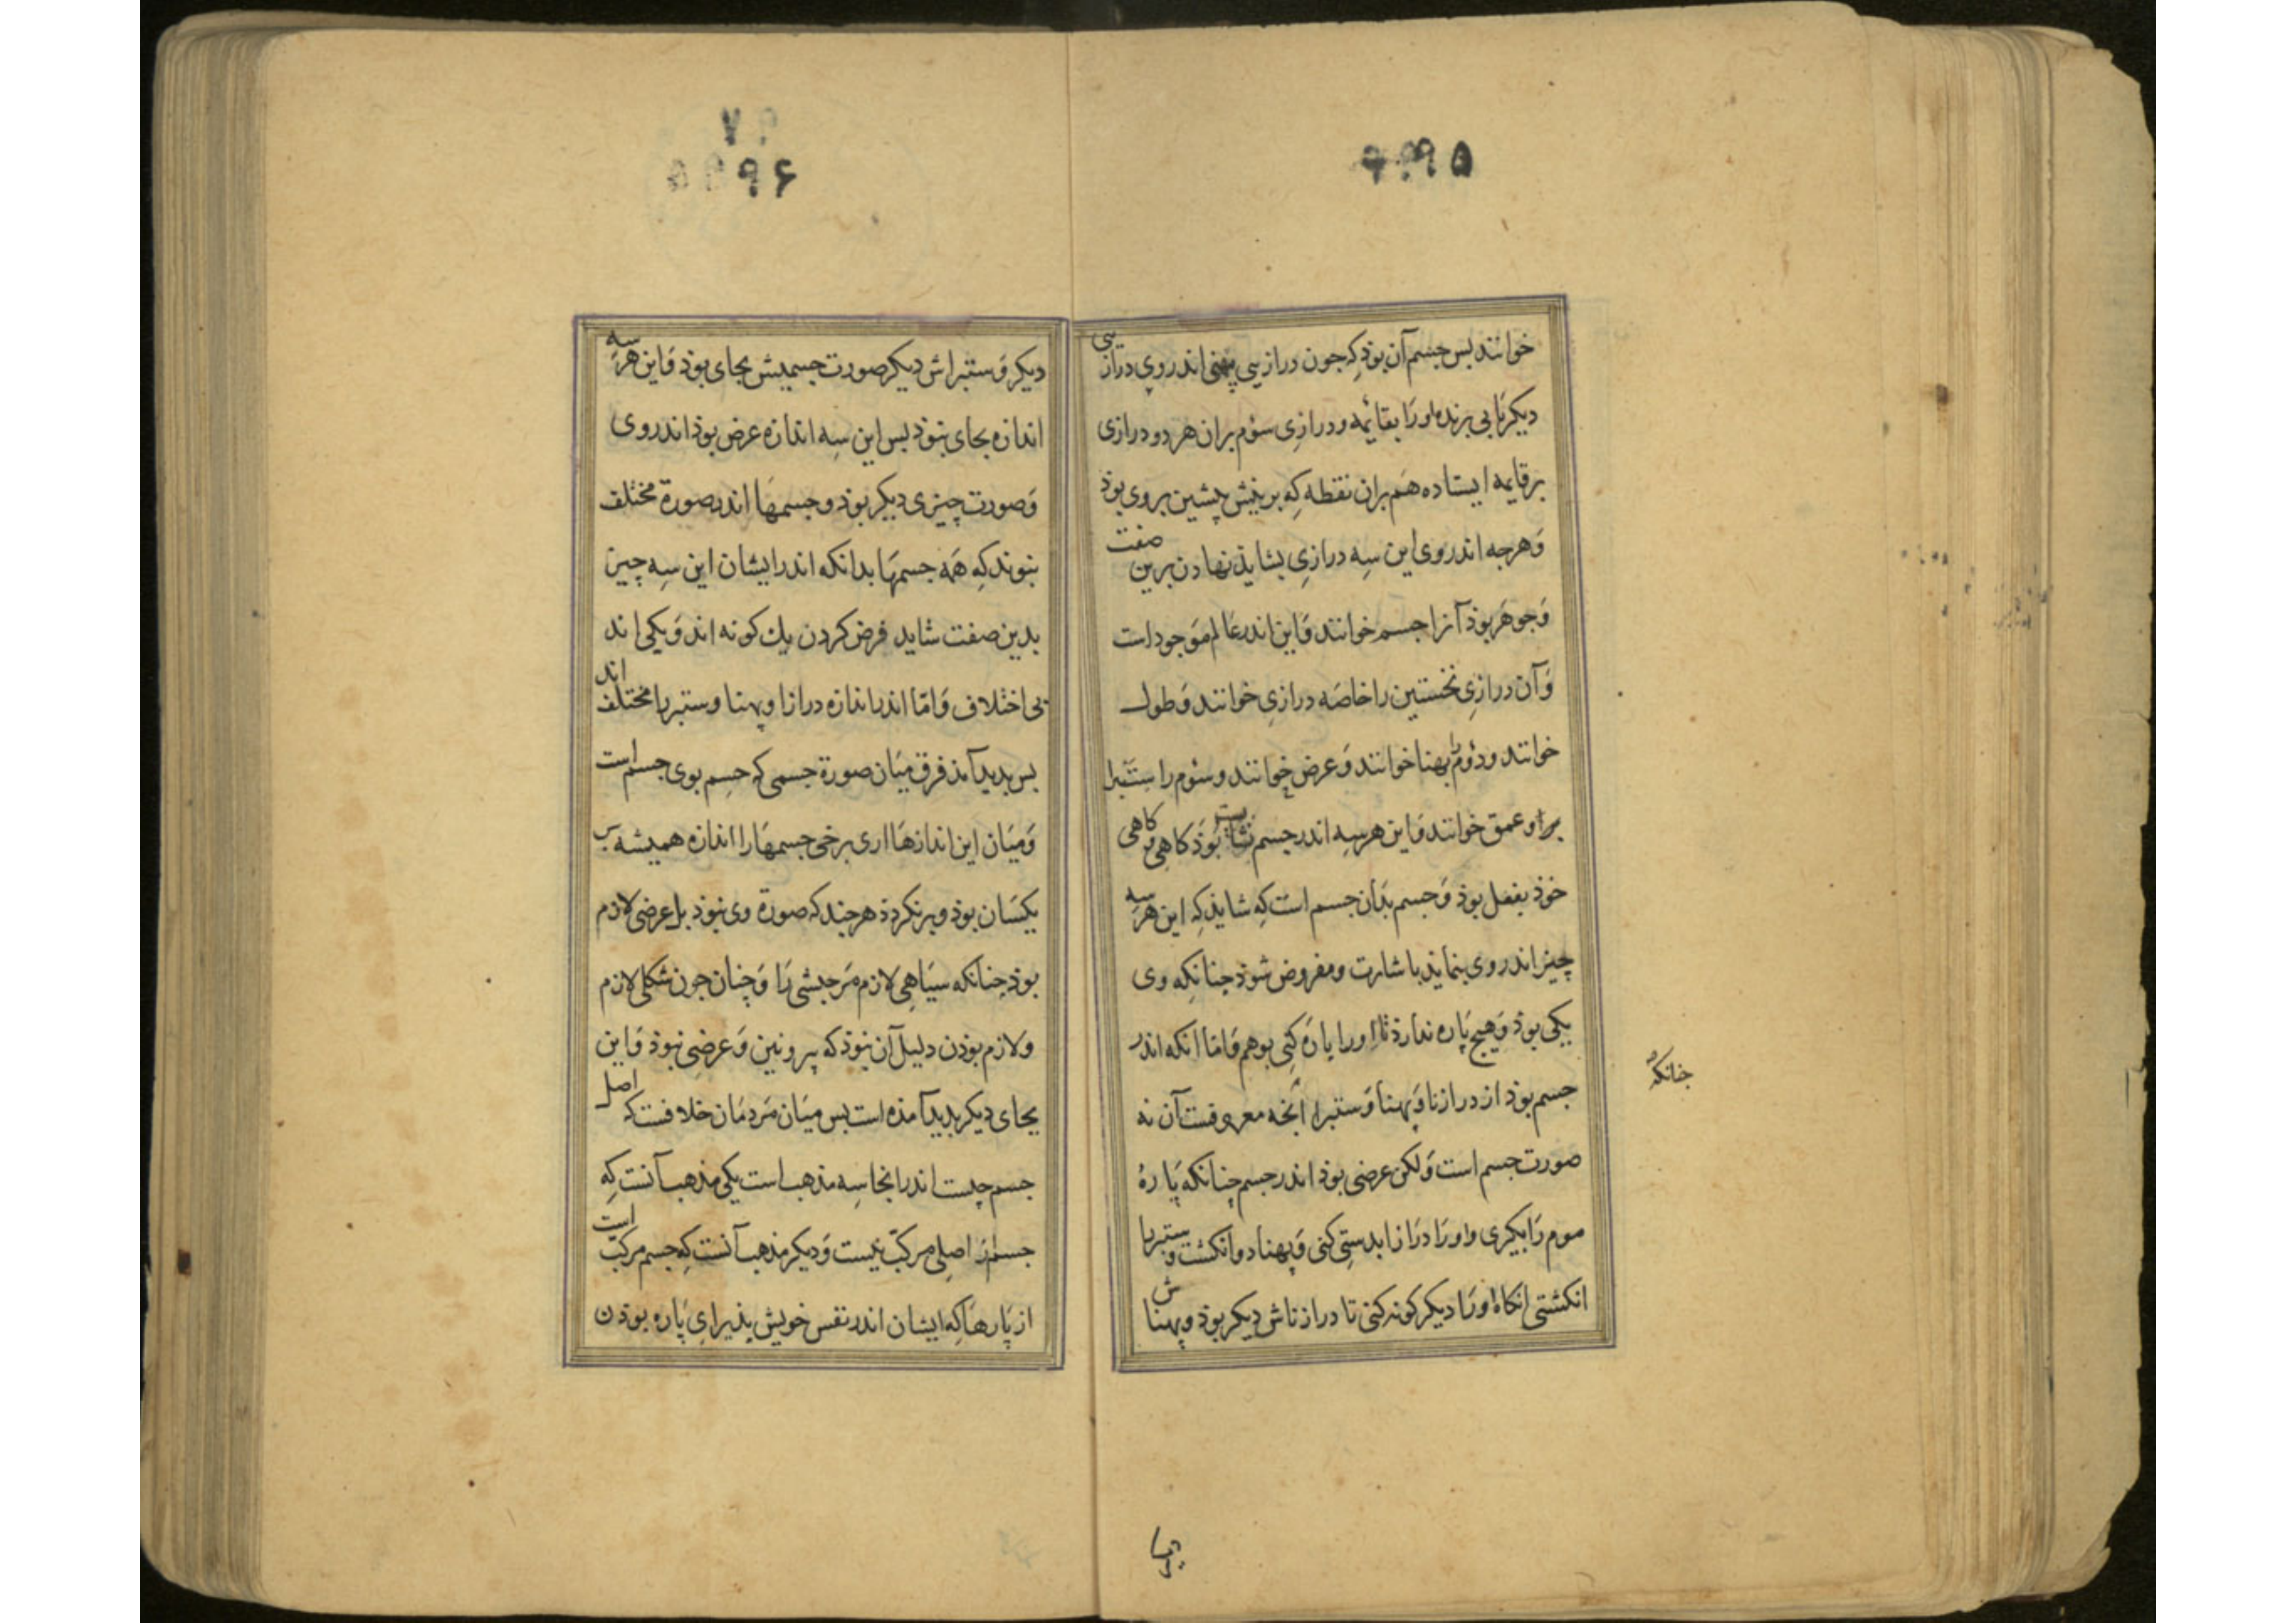 ۹۹۵
خوانند بس جسم آن بوذ که جون درازیی بنهی اندر وی درازیی
دیکر یابی برنده او را بقائمه و درازی سوم بران هر دو درازی
برقایمه ایستاده هم بران نقطه که برینش پیشین بروی بوذ
وهرجه اندر وی این سه درازی بشایذ نهاذن برین صفت
وجوهر بوذ آنرا جسم خوانند واین اندر عالم موجودات
وآن درازی نخستین را خاصه درازی خوانند وطول
خوانند ودوم را بهنا خوانند وعرض خوانند وسوم را ستبرا
برا وعمق خوانند واین هر سه اندر جسم بوذ کاهی وکاهی
خوذ بفعل بوذ وجسم بدان جسم است که شایذ که این هر سه
چیز اندر وی بنمایند باشارت ومفروض شوذ جنانکه وی
یکی بوذ وهیج پاره ندارذ تا او را پاره کنی بوهم واما انکه اندر
جسم بوذ از درازنا وپهنا وستبرا آنجه معروفست آن نه
صورت جسم است ولکن عرضی بوذ اندر جسم چنانکه پارهٔ
موم را بیکری واو را درازا بدستی کنی وپهنا دو انکشت وستبرا
انکشتی انکاه او را دیکر کونه کنی تا درازناش دیکر بوذ وپهناش
جنانکه
۹۹۶
دیکر وستبراش دیکر صورت جسمیش بجای بوذ واین هر سه
اندازه بجای نبوذ بس این سه اندازه عرض بوذ اندر وی
وصورت چیزی دیکر بوذ وجسمها اندر صورة مختلف
نبوند که همه جسمها بدانکه اندر ایشان این سه چیز
بدین صفت شاید فرض کردن یك کونه اند ویکی اند
بی اختلاف واما اندر اندازه درازا وپهنا وستبرا مختلف اند
بس بدید آمذ فرق میان صورة جسمی که جسم بوی جسم است
ومیان این اندازها اری برخی جسمها را اندازه همیشه بر
یکسان بوذ وبرنکردذ هرجند که صورة وی نبوذ بل عرضی لازم
بوذ جنانکه سیاهی لازم مر حبشی را وچنان جون شکلی لازم
ولازم بوذن دلیل آن نبوذ که بیرونین وعرضی نبوذ واین
بجای دیکر بدید آمذه است بس میان مردمان خلافست که اصل
جسم چیست اندر انجا سه مذهب است یکی مذهب آنست که
جسم از اصلی مرکب نیست ودیکر مذهب آنست که جسم مرکب است
از پارها که ایشان اندر نفس خویش پذیرای پاره بوذن